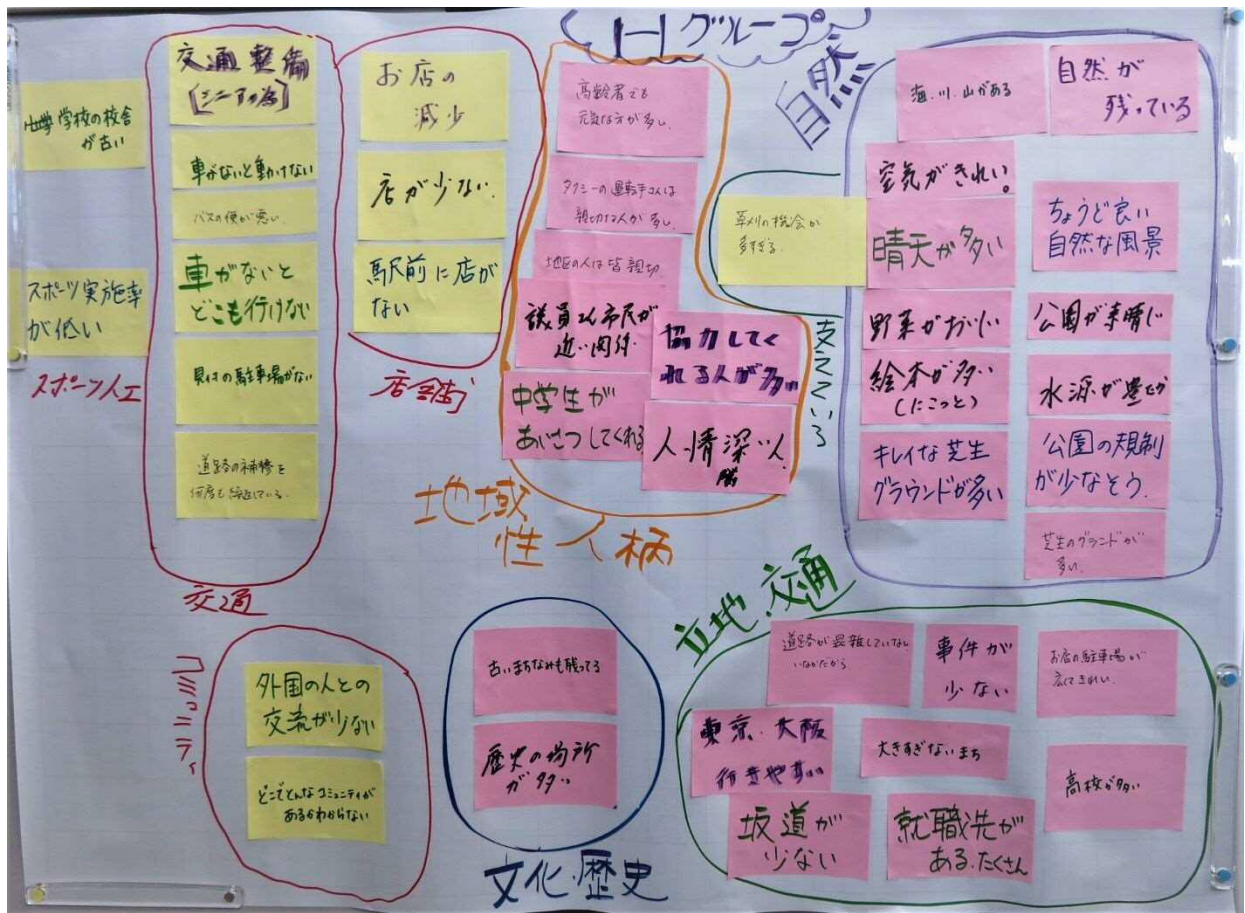 Hグループ
学校の校舎
が古い
スポーツ実施率
が低い
スポーツ人工
交通整備
[シニアの為]
車がないと動けない
バスの便が悪い
車がないと
どこも行けない
駐車場がない
道路の補修を
何度も
交通
お店の
減少
店が少ない.
駅前に店が
ない
店舗
高齢者でも
元気な方が多い.
タクシーの運転手さんは
親切な人が多い.
地区の人は皆親切
議員さん市民が
近い関係.
協力してく
れる人が多い
中学生が
あいさつしてくれる
人情深い人
地域
性人柄
草刈りの機会が
多すぎる.
支えている
自然
海.川.山がある
自然が
残っている
空気がきれい。
晴天が多い
ちょうど良い
自然な風景
野菜がおいしい
公園が素晴し
絵本が多い
(にこっと)
水源が豊か
キレイな芝生
グラウンドが多い
公園の規制
が少なそう.
芝生のグランドが
多い.
コミュニティ
外国の人との
交流が少ない
どこでどんなコミュニティが
あるかわからない
古いまちなみも残ってる
歴史の場所
が多い
文化・歴史
立地.交通
道路が混雑していない
いなかだから
事件が
少ない
お店の駐車場が
広くてきれい.
東京.大阪
行きやすい
大きすぎないまち
高校が多い
坂道が
少ない
就職先が
ある.たくさん